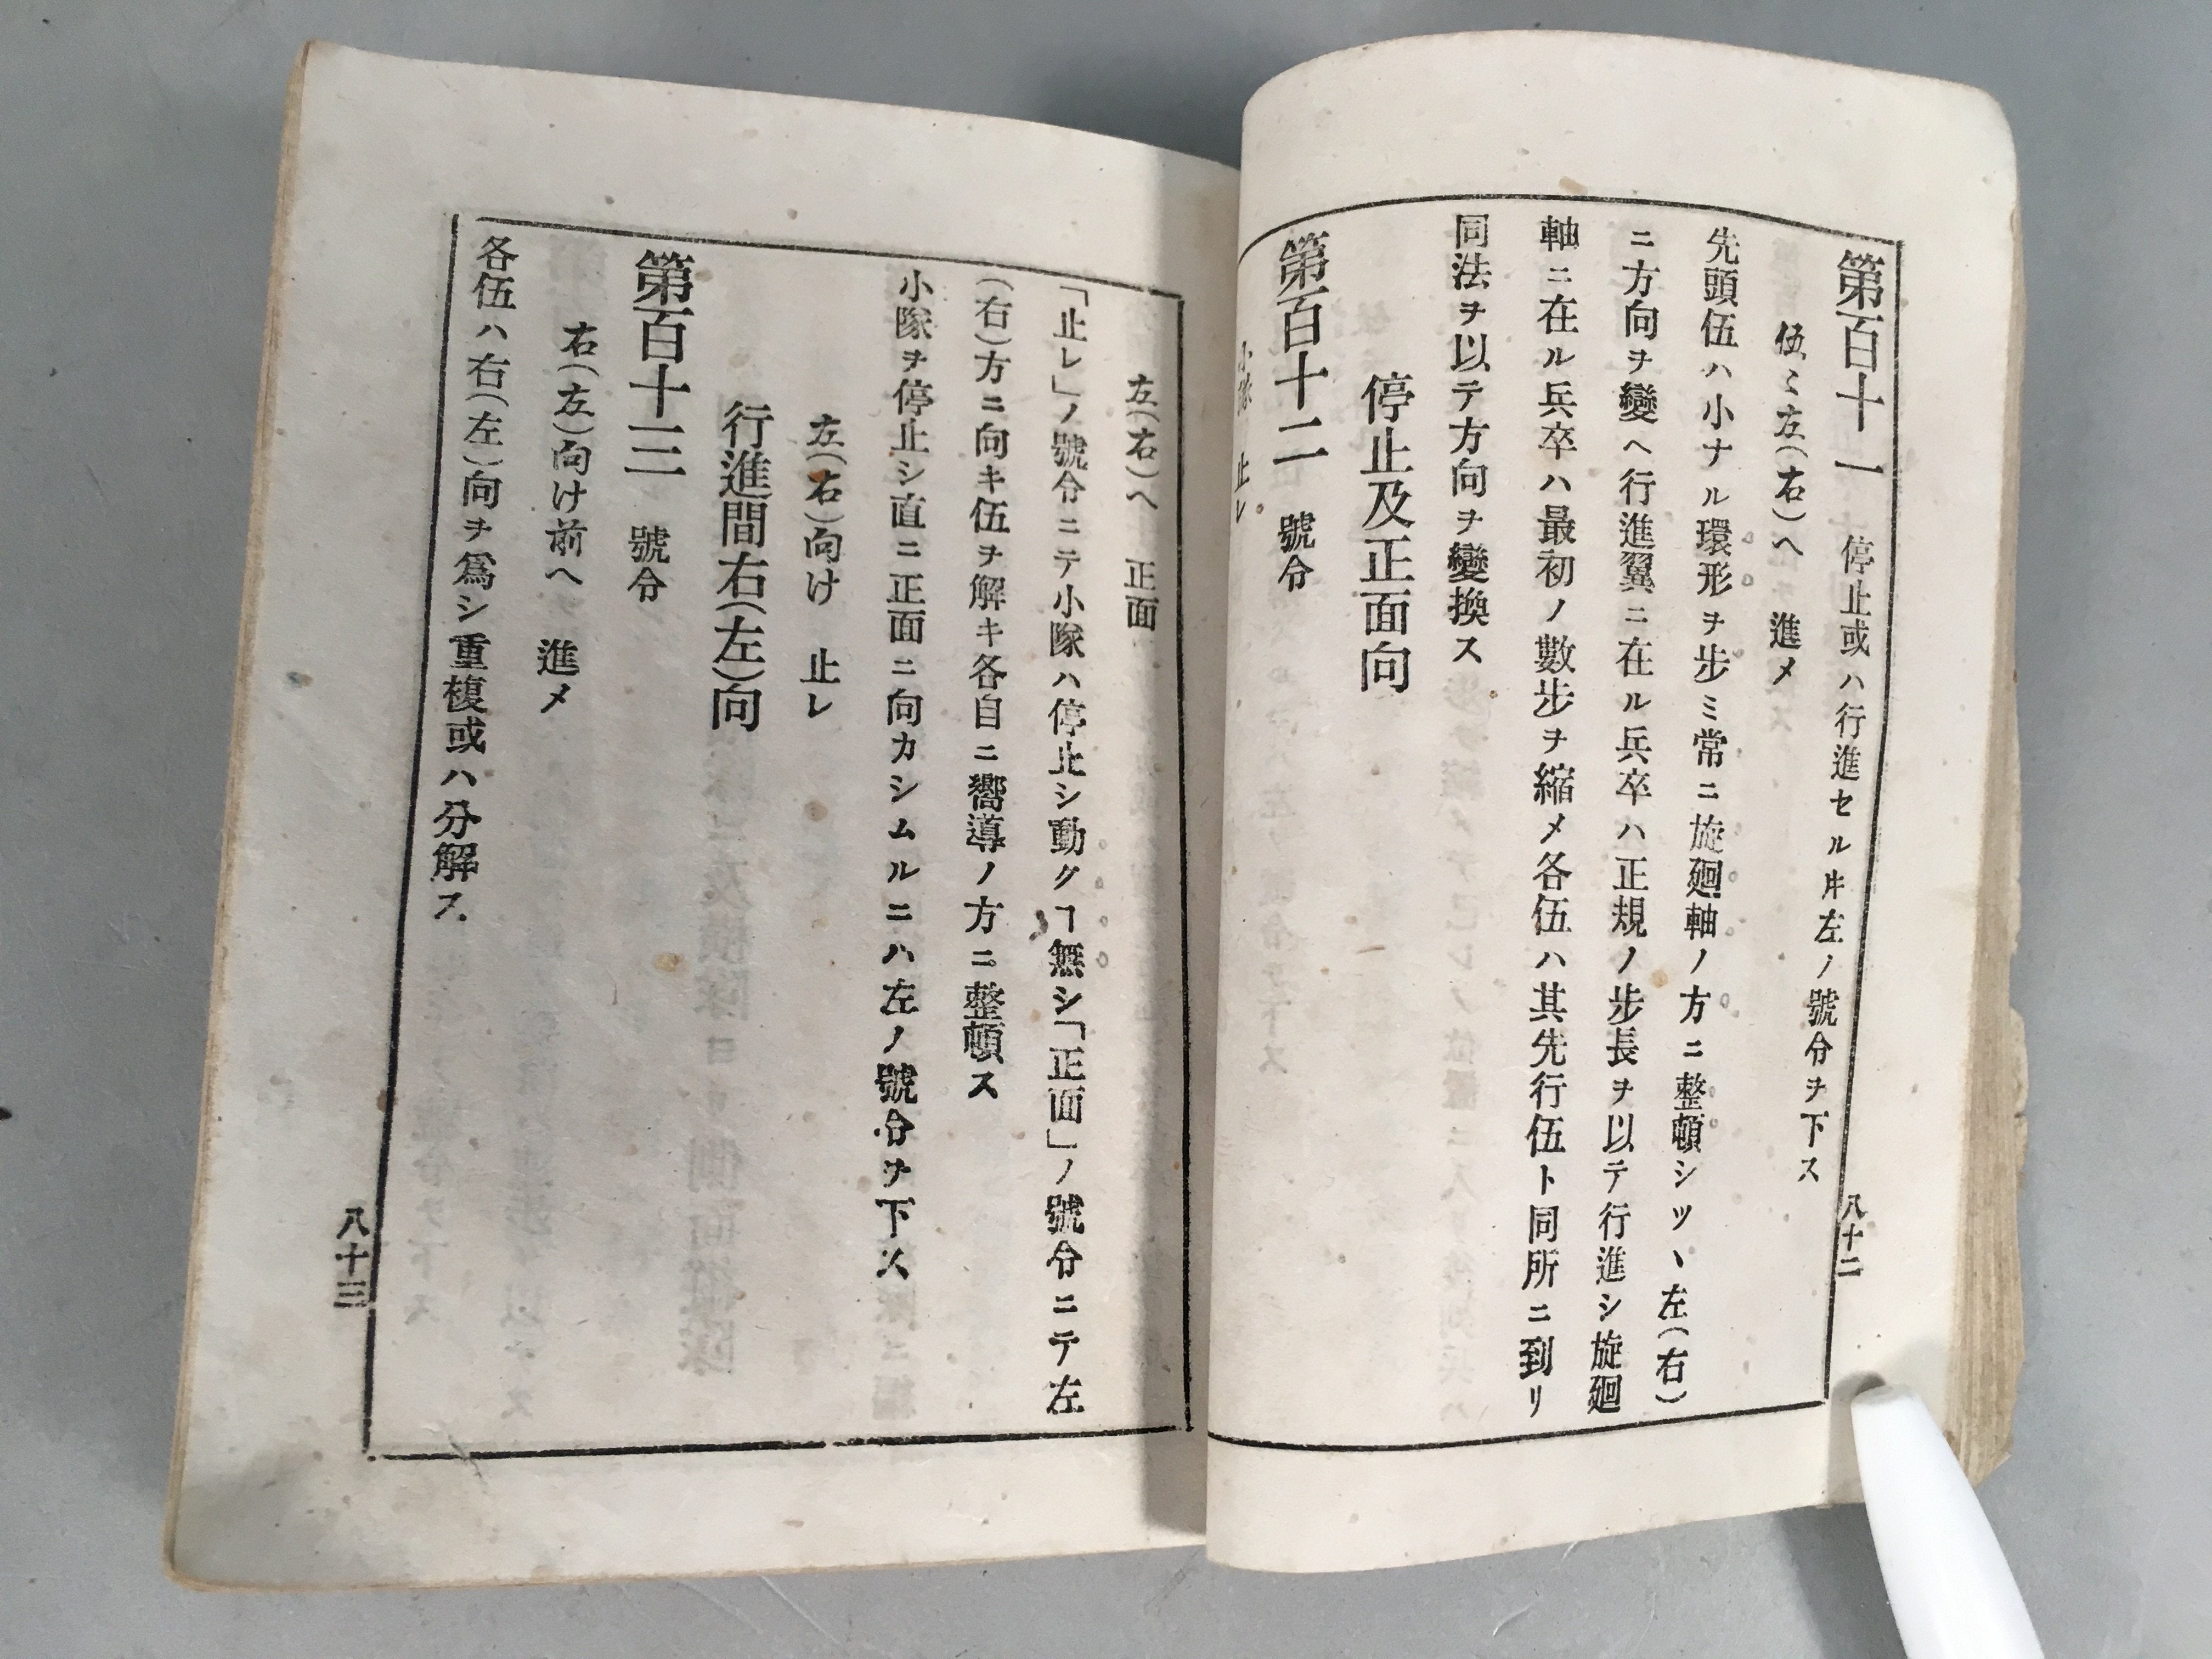 第百十一 停止或ハ行進セル𪜈左ノ號令ヲ下ス
伍々左(右)ヘ 進メ
先頭伍ハ小ナル環形ヲ步ミ常ニ旋廻軸ノ方ニ整頓シツヽ左(右)
ニ方向ヲ變ヘ行進翼ニ在ル兵卒ハ正規ノ步長ヲ以テ行進シ旋廻
軸ニ在ル兵卒ハ最初ノ數步ヲ縮メ各伍ハ其先行伍ト同所ニ到リ
同法ヲ以テ方向ヲ變換ス
停止及正面向
第百十二 號令
小隊 止レ
八十二
左(右)ヘ 正面
「止レ」ノ號令ニテ小隊ハ停止シ動クヿ無シ「正面」ノ號令ニテ左
(右)方ニ向キ伍ヲ解キ各自ニ嚮導ノ方ニ整頓ス
小隊ヲ停止シ直ニ正面ニ向カシムルニハ左ノ號令ヲ下ス
左(右)向け 止レ
行進間右(左)向
第百十三 號令
右(左)向け前ヘ 進メ
各伍ハ右(左)向ヲ爲シ重複或ハ分解ス
八十三